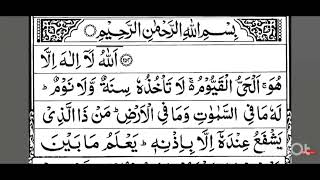 بِسْمِ اللّٰهِ الرَّحْمٰنِ الرَّحِيْمِ
اَللّٰهُ لَآ اِلٰهَ اِلَّا
هُوَ ۚ اَلْحَيُّ الْقَيُّوْمُ ۚ لَا تَاْخُذُهٗ سِنَةٌ وَّلَا نَوْمٌ ؕ
لَهٗ مَا فِي السَّمٰوٰتِ وَمَا فِي الْاَرْضِ ؕ مَنْ ذَا الَّذِيْ
يَشْفَعُ عِنْدَهٗٓ اِلَّا بِاِذْنِهٖ ؕ يَعْلَمُ مَا بَيْنَ